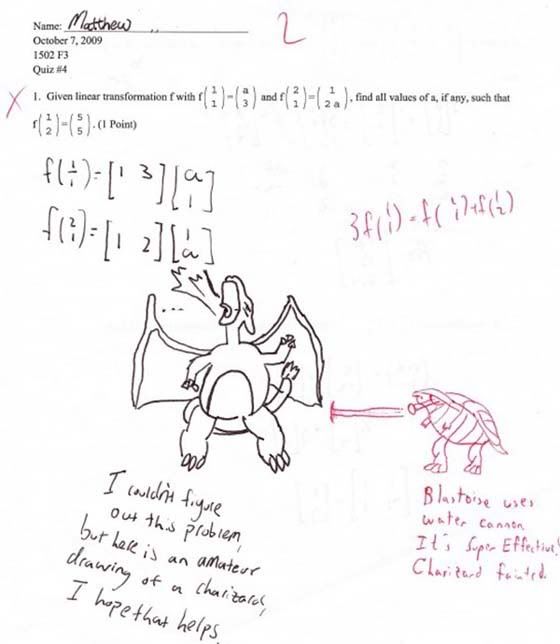 Name: Matthew
2
October 7, 2009
1502 F3
Quiz #4
X 1. Given linear transformation f with f(1 1)=(a 3) and f(2 1)=(1 2a), find all values of a, if any, such that
f(1 2)=(5 5). (1 Point)
f(1 1)=[1 3][a 1]
f(2 1)=[1 2][1 a]
3f(1 1)=f(2 1)+f(1 2)
...
I couldn't figure
out this problem,
but here is an amateur
drawing of a charizard,
I hope that helps.
Blastoise uses
water cannon
It's Super Effective!
Charizard fainted.